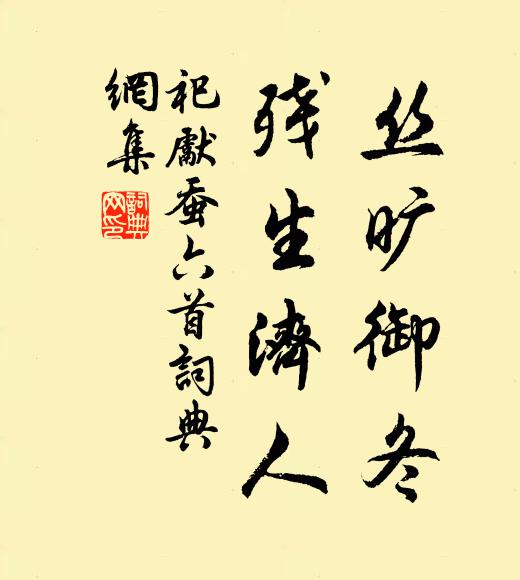 丝旷御冬
残生濟人
祀獻蚕六首詞典
網集
詞典網印